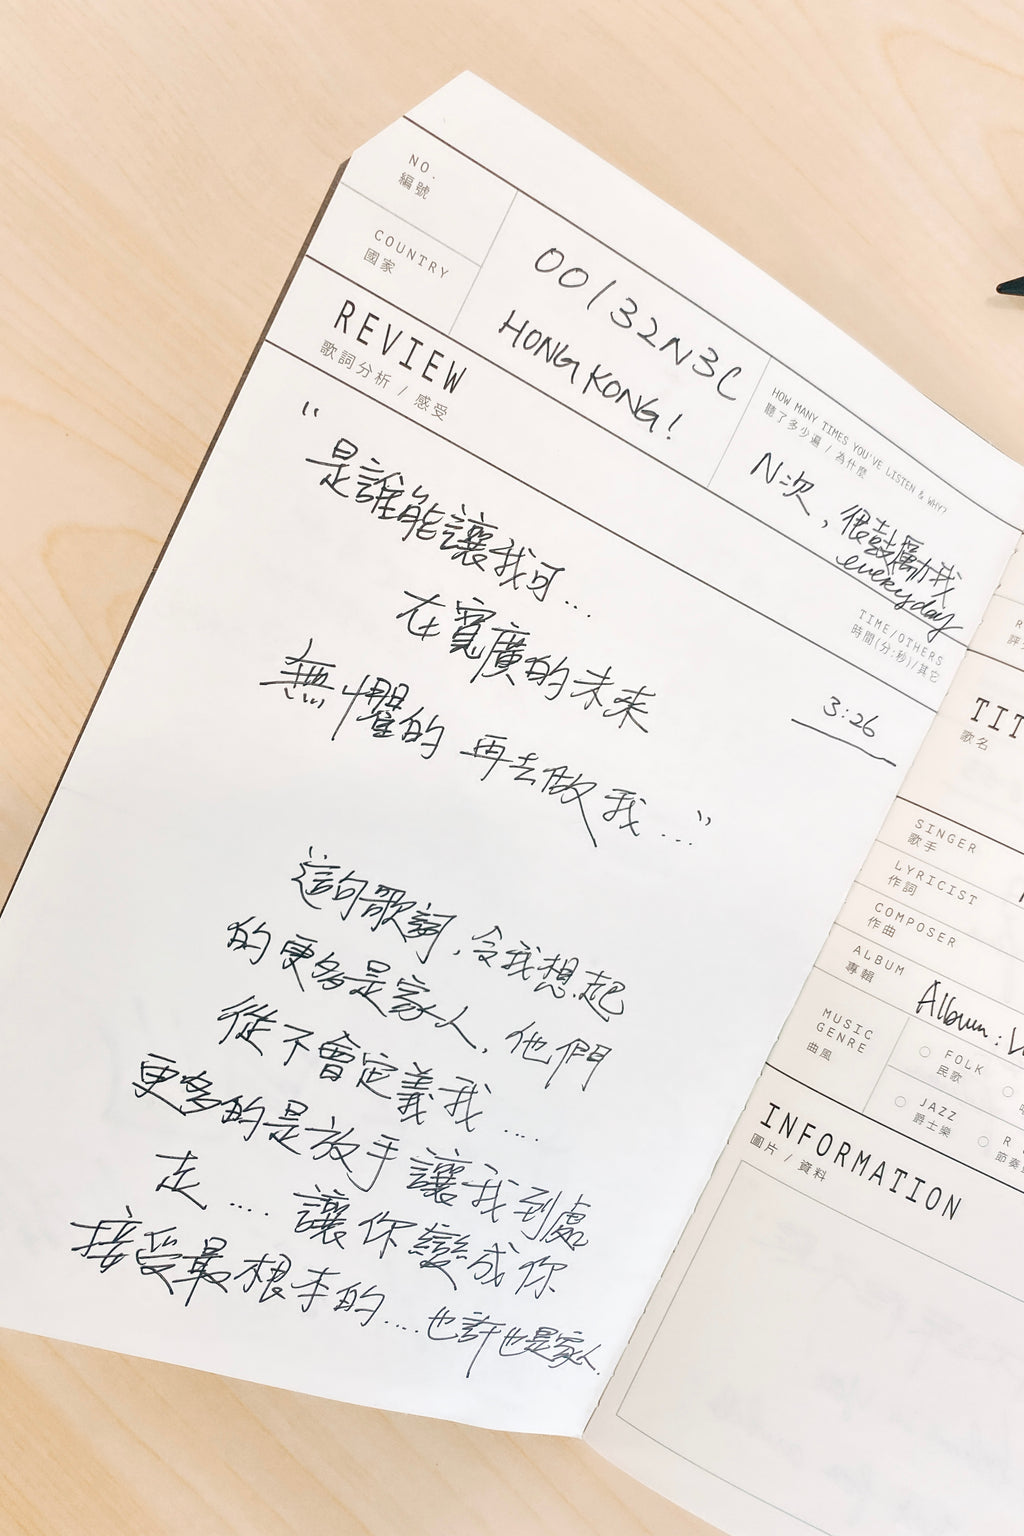 NO.
編號
00132N3C
COUNTRY
國家
HONG KONG!
HOW MANY TIMES YOU'VE LISTEN & WHY?
聽了多少遍 / 為什麼
N次，很鼓勵我
everyday
REVIEW
歌詞分析 / 感受
TIME/OTHERS
時間(分:秒)/其它
3:26
"是誰能讓我可...
在寬廣的未來
無懼的 再去做我..."
這句歌詞，令我想起
的更多是家人，他們
從不會定義我....
更多的是放手讓我到處
走....讓你變成你
接受最根本的....也許也是家人.
TIT
歌名
SINGER
歌手
LYRICIST
作詞
COMPOSER
作曲
ALBUM
專輯
Album:
MUSIC
GENRE
曲風
FOLK
民歌
JAZZ
爵士樂
R
節奏
INFORMATION
圖片 / 資料